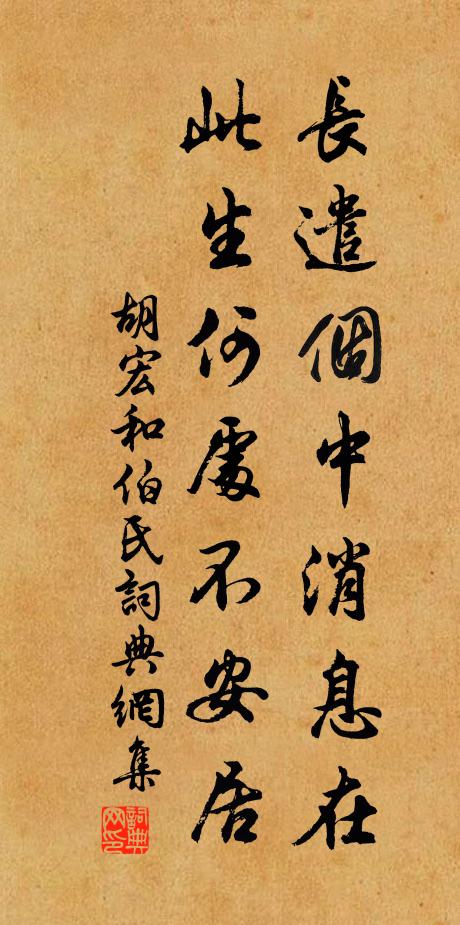 長遣個中消息在
此生何處不安居
胡宏和伯氏詞典網集
詞典網印